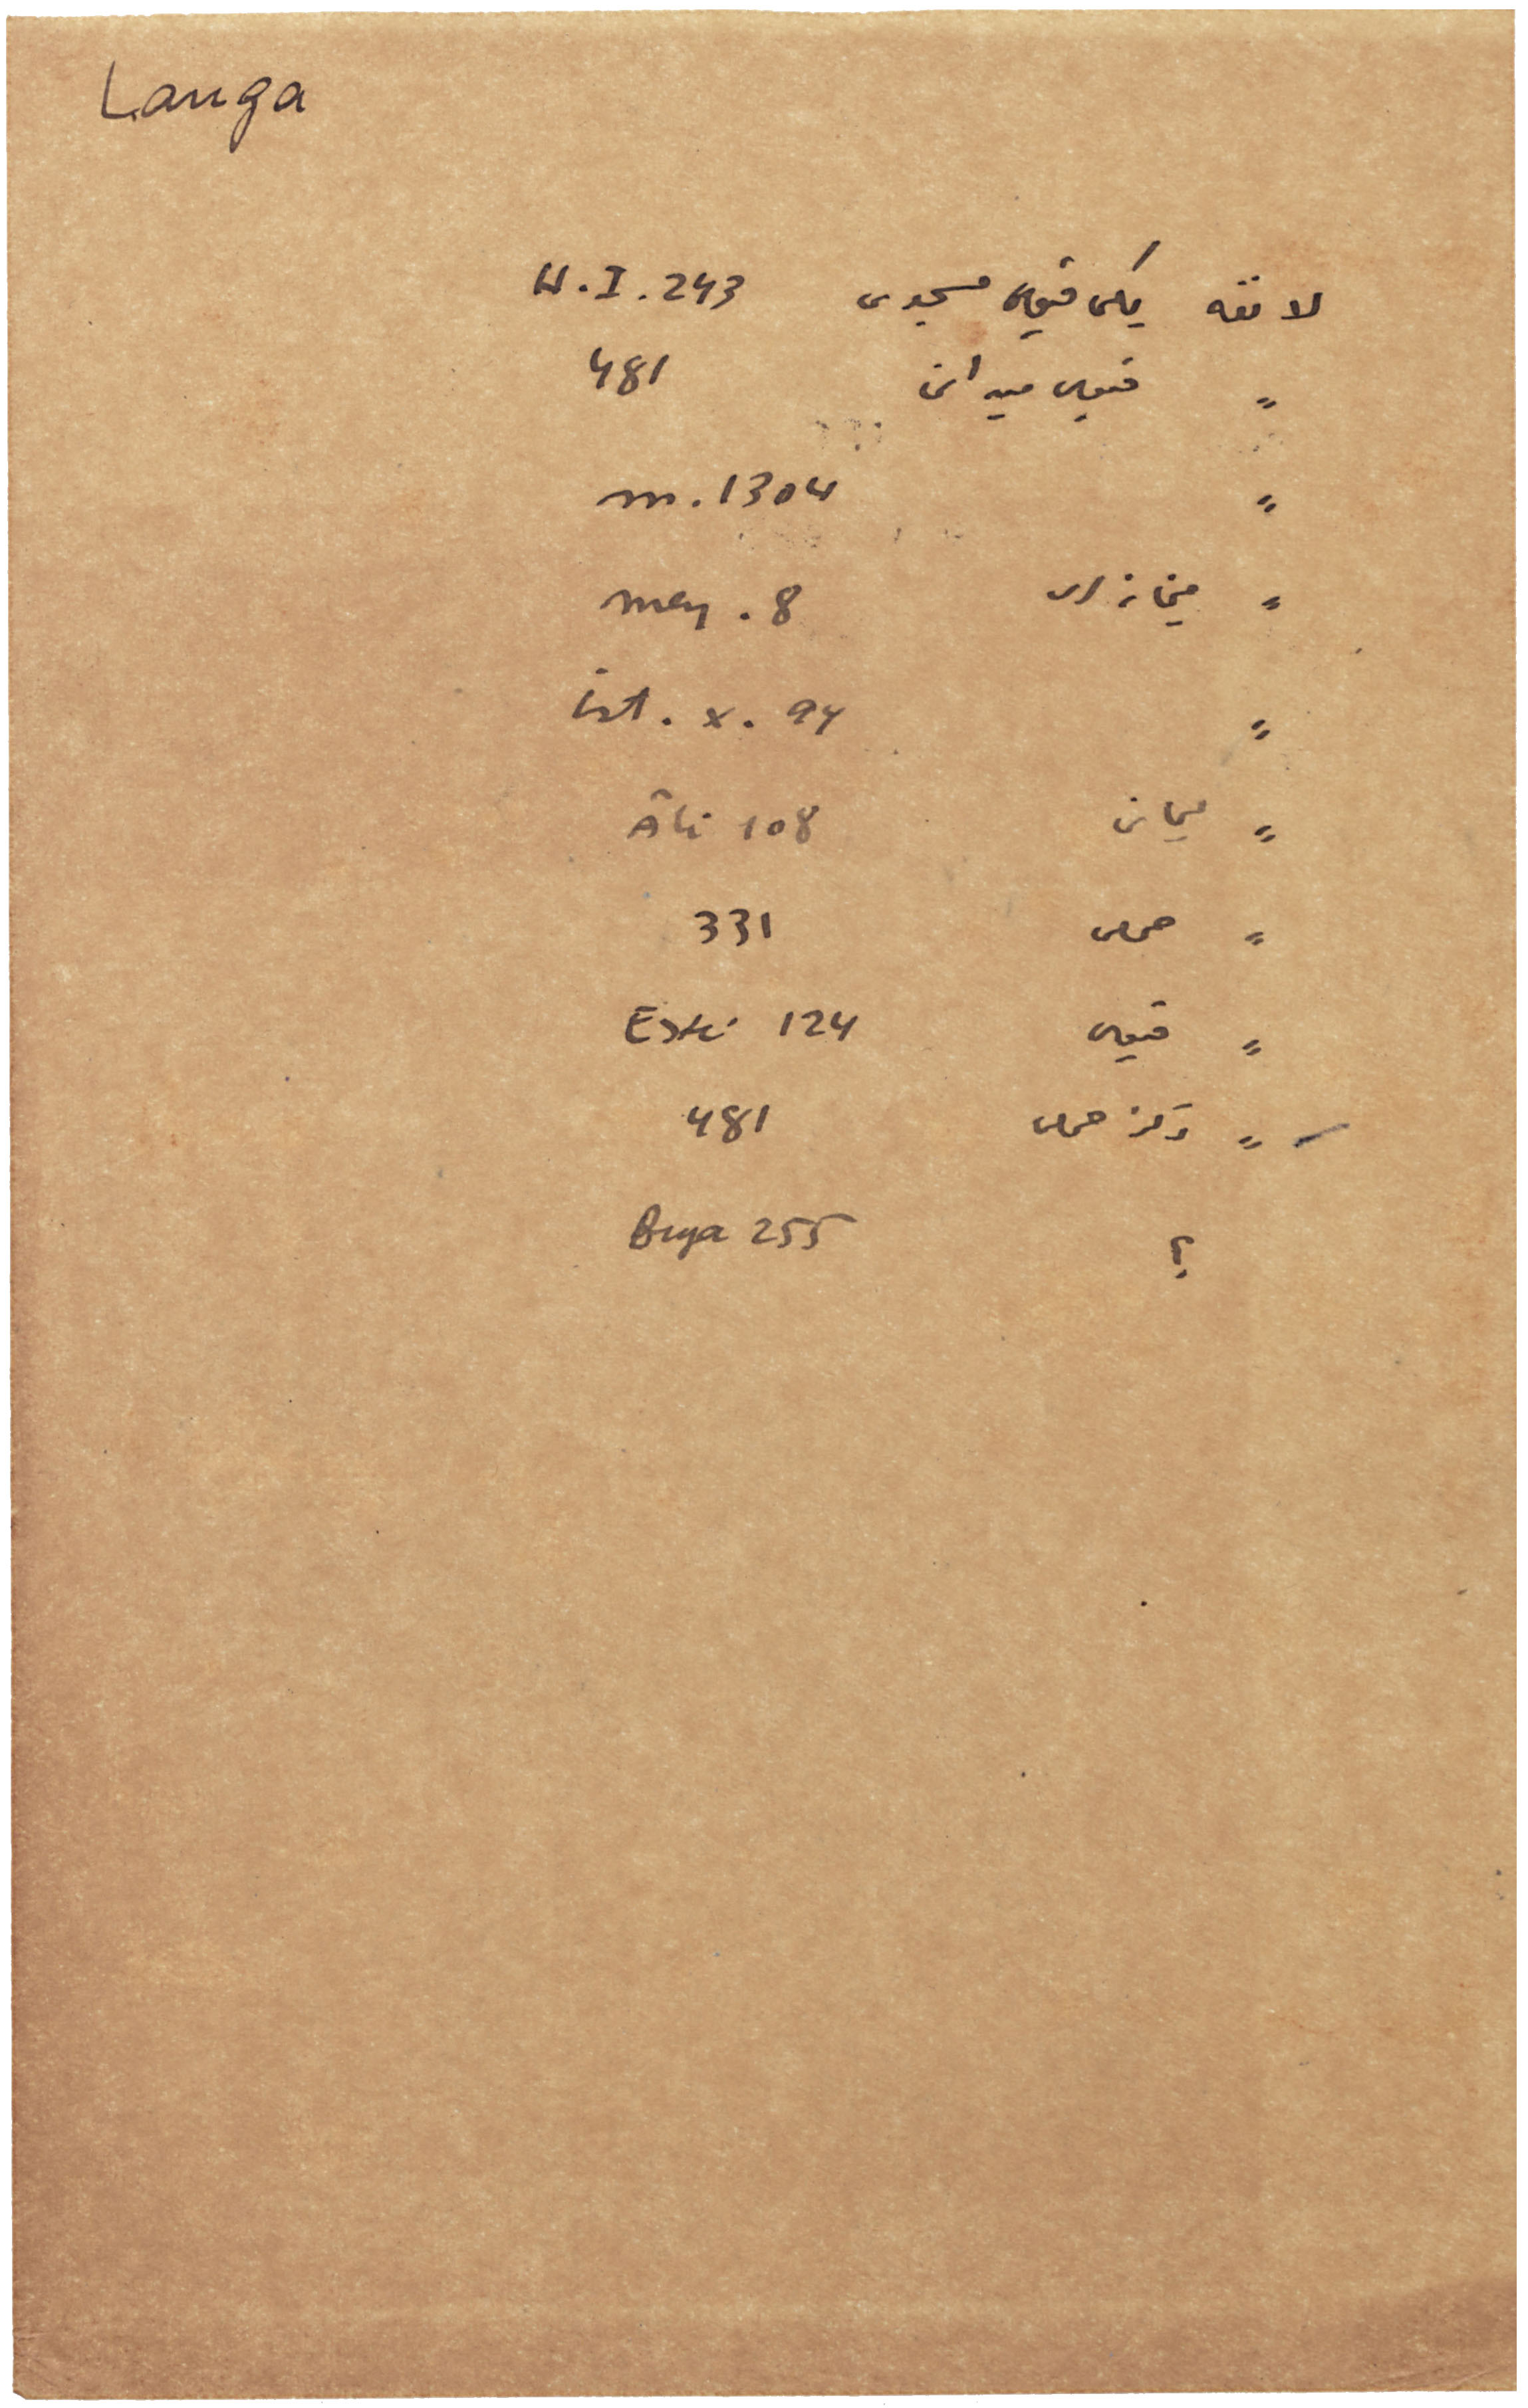 Langa
لانغه یکی قپوسی مسجدی H.I. 243
〃 قپوسی میدانی 481
〃 m. 1304
〃 میخانه لری mey. 8
〃 İst. x. 94
〃 لیمانی Âli 108
〃 حمامی 331
〃 قپوسی Eski 124
〃 دکز حمامی 481
؟ Buya 255